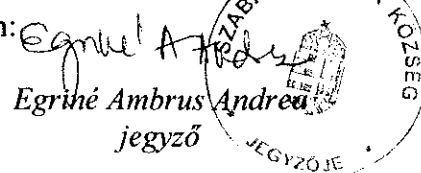 n:
Egriné Ambrus Andrea
jegyző
KÖZSÉG
JEGYZŐJE